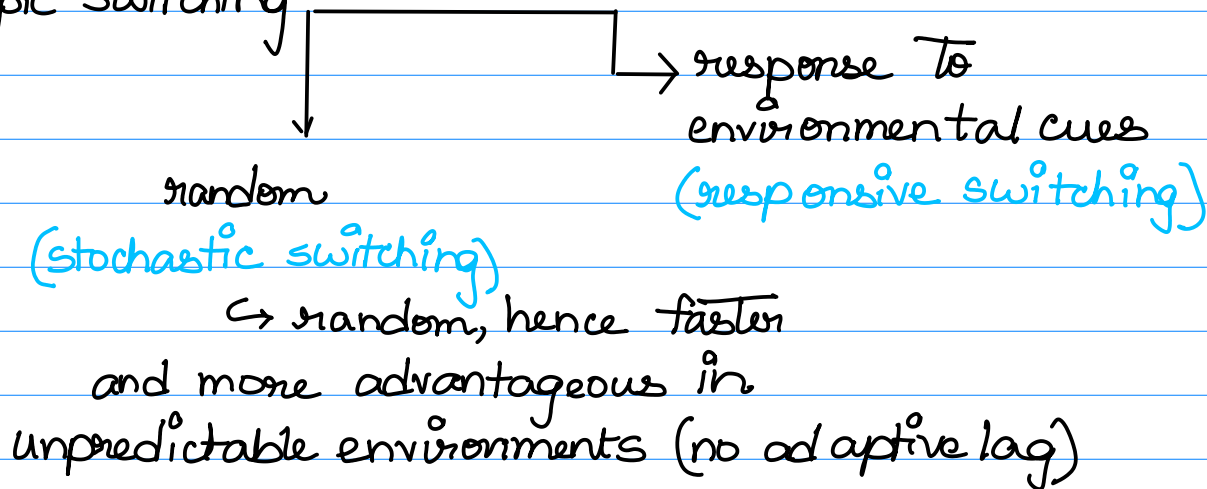 switching
response to
environmental cues
random
(responsive switching)
(stochastic switching)
↪ random, hence faster
and more advantageous in
unpredictable environments (no adaptive lag)